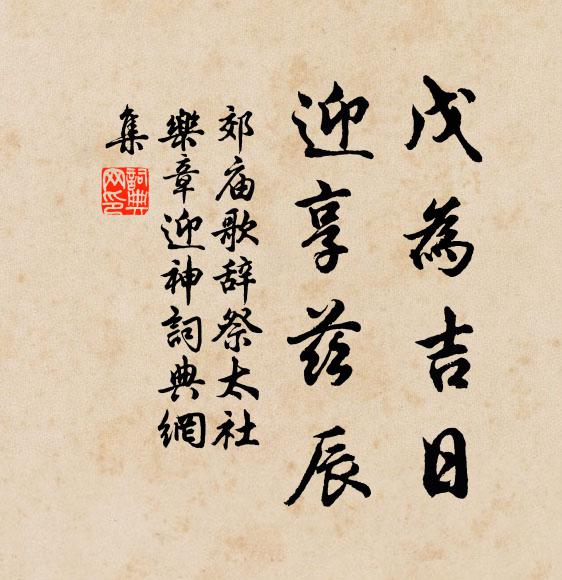 戊為吉日
迎享茲辰
郊庙歌辞祭太社
樂章迎神詞典網
集
詞典
网印